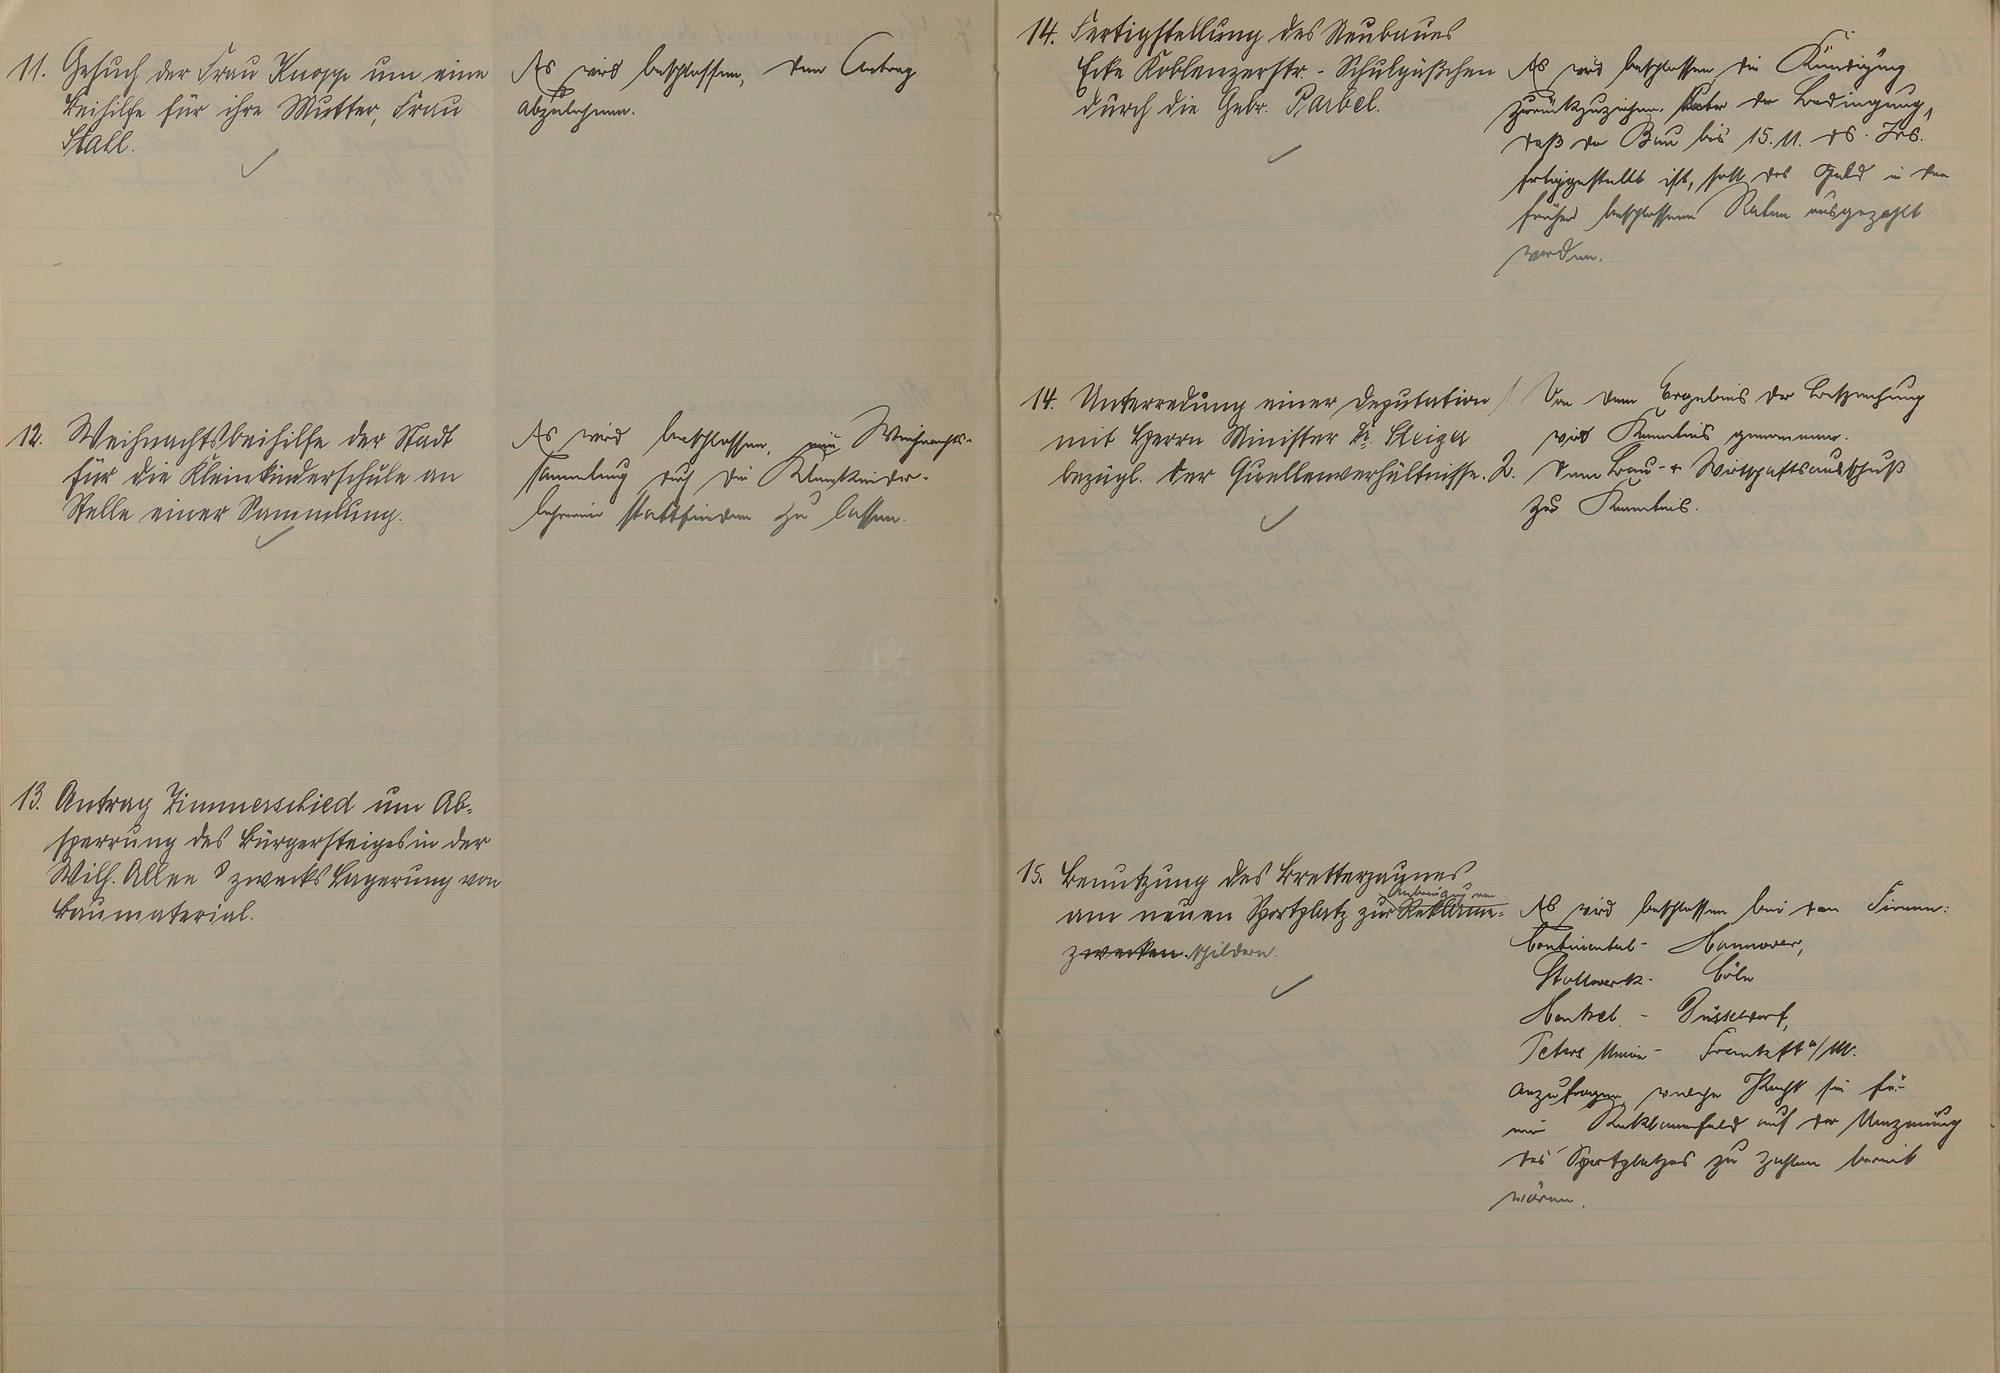 11. Gesuch der Frau Knopp um eine
Beihilfe für ihre Mutter, Frau
Stall.
Es wird beschlossen, den Antrag
abzulehnen.
12. Weihnachtsbeihilfe der Stadt
für die Kleinkinderschule an
Stelle einer Sammlung.
Es wird beschlossen, eine Weihnachts-
sammlung durch die Kleinkinder-
lehrerin stattfinden zu lassen.
13. Antrag Zimmerschied um Ab-
sperrung des Bürgersteiges in der
Wilh. Allee 8 zwecks Lagerung von
Baumaterial.
14. Fertigstellung des Neubaues
Ecke Koblenzerstr. - Schulgäßchen
durch die Gebr. Parbel.
Es wird beschlossen die Kündigung
zurückzuziehen. Unter der Bedingung,
daß der Bau bis 15.11. ds. Jrs.
fertiggestellt ist, soll das Geld in den
früher beschlossenen Raten ausgezahlt
werden.
14. Unterredung einer Deputation
mit Herrn Minister Dr. Steiger
bezügl. der Quellenverhältnisse.
1. Von dem Ergebnis der Besprechung
wird Kenntnis genommen.
2. Dem Bau- & Wirtschaftsausschuß
zur Kenntnis.
15. Benutzung des Bretterzaunes
am neuen Sportplatz zur Anbringung von Reklame-
zwecken. schildern.
Es wird beschlossen bei den Firmen:
Continental - Hannover,
Stollwerk - Cöln
Henkel - Düsseldorf,
Peters Union - Frankft a/M.
anzufragen, welche Pacht sie für
ein Reklamefeld auf der Umzäunung
des Sportplatzes zu zahlen bereit
wären.